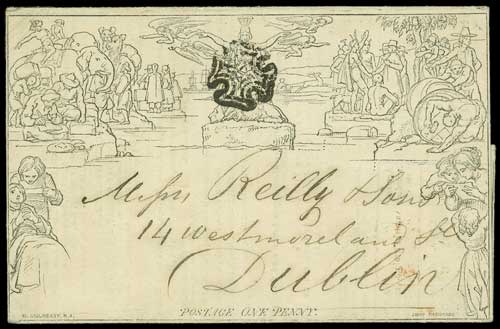 Messrs Reilly & Sons
14 Westmoreland St
Dublin
POSTAGE ONE PENNY.
W. MULREADY, R.A.
JOHN THOMPSON